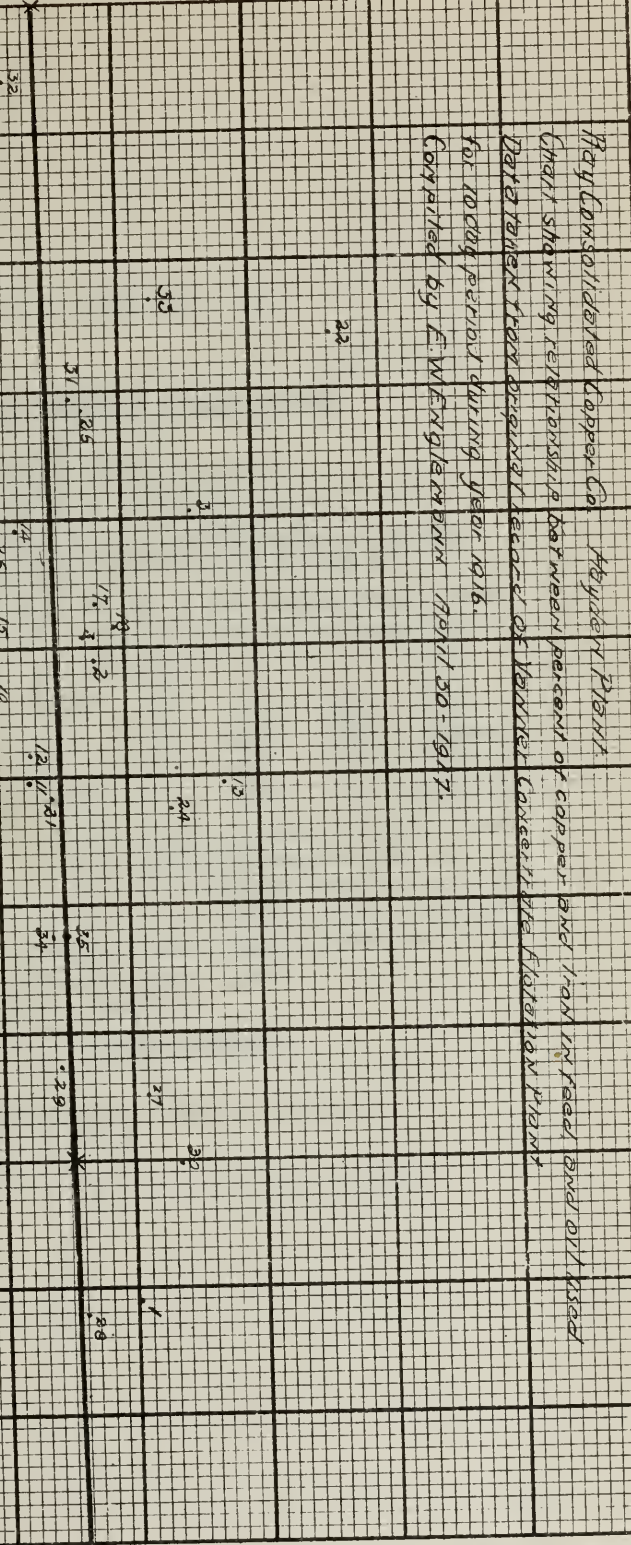 Ray Consolidated Copper Co. Hayden Plant.
Chart showing relationship between percent of copper and Iron in feed and oil used
Data taken from original record of Vanner Concentrate Flotation Plant
for 10 day period during year 1916.
Compiled by E. W. Englemann April 30-1917.
22
33
3
13
24
30
27
1
18
17
4
2
31
25
28
35
34
29
21
11
12
14
32
10